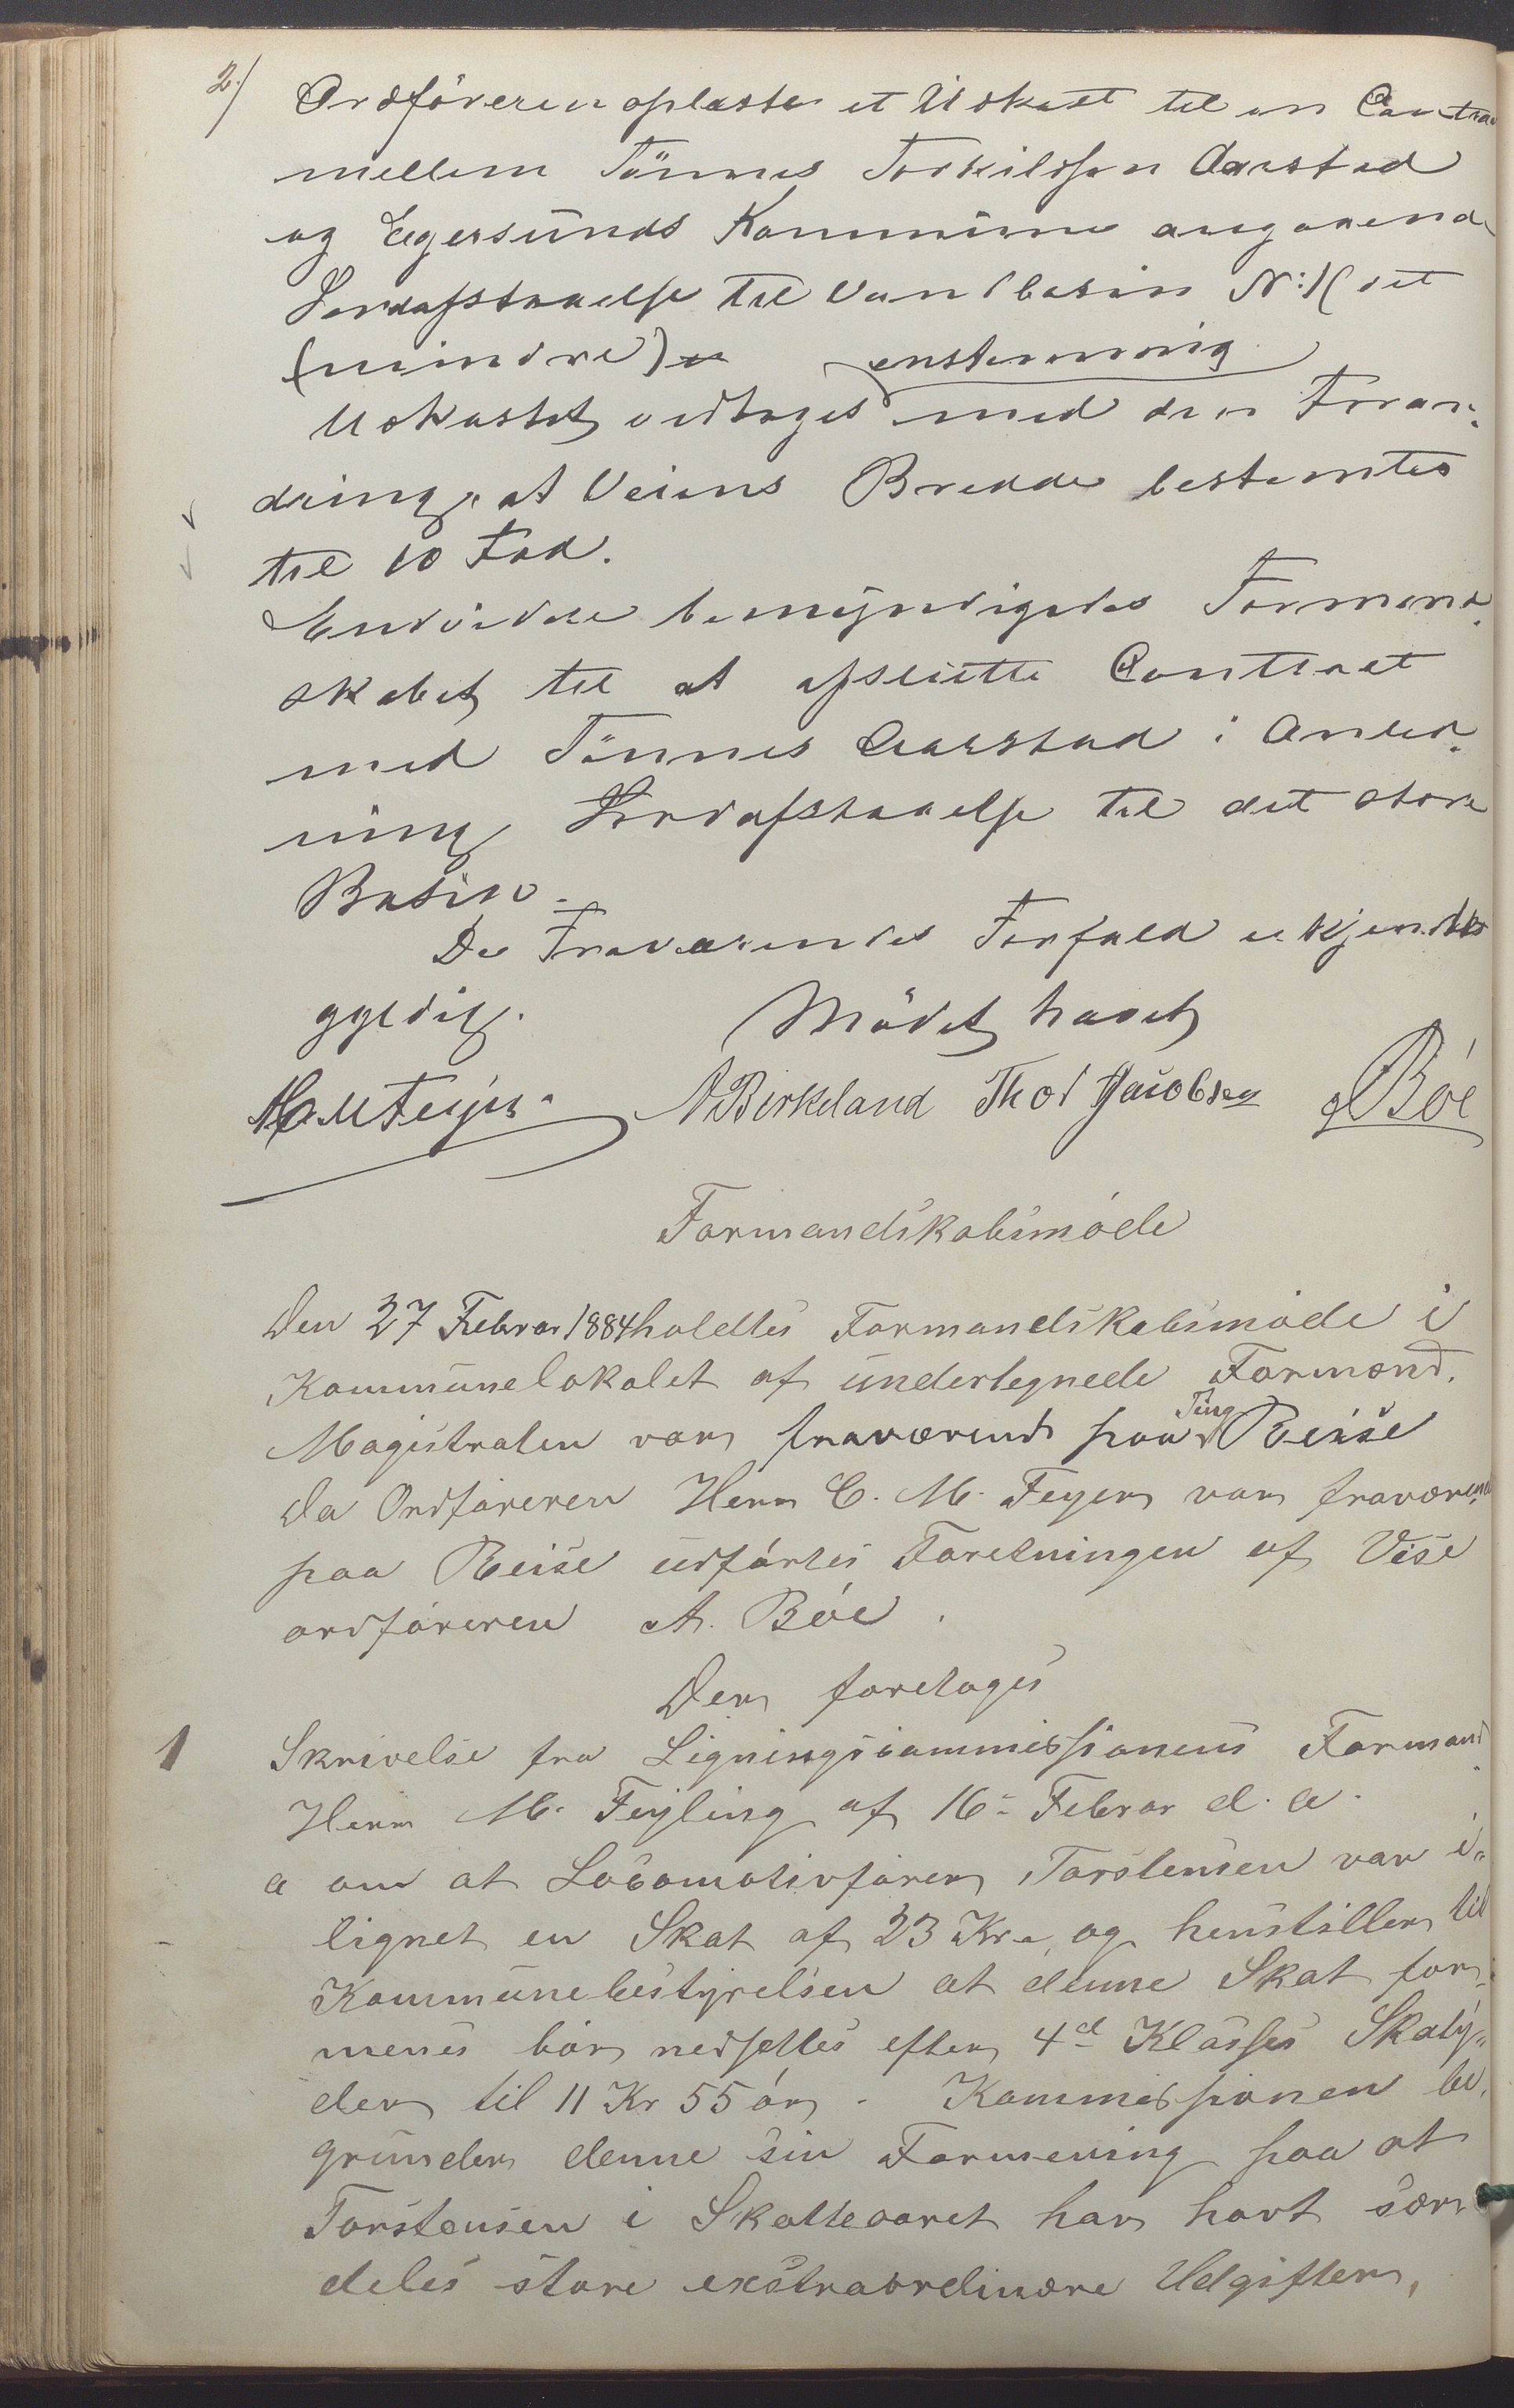 2./ Ordföreren oplæste et Udkast til en Contra
mellem Tönnes Torkildsen Aarstad
og Egersunds Kommune angaaende
Jordafstaaelse til Vandbasin N: 1 (det
(mindre) enstemmig
Udkastet vedtoges med den Foran-
dring, at Veiens Bredde bestemtes
til 10 Fod.
Endvidere bemyndigedes Formand-
skabet til at afslutte Contract
med Tönnes Aarstad i Anled-
ning Jordafstaaelse til det store
Basin.
De Fraværendes Forfald erkjendtes
gyldig. Mödet hævet
C M Feyer. A Birkeland Thod Jacobsen A Bóe
Formandskabsmóde
Den 27 Februar 1884 holdtes Formandskabsmóde i
Kommunelokalet af undertegnede Formænd.
Magistraten var fraværende paa Ting Reise
Da Ordfóreren Herr C. M. Feyer var fraværend
paa Reise udfórtes Foretningen af Vise
ordfóreren A. Bóe.
Der foretoges
1 Skrivelse fra Ligningscommissionens Formand
Herr M. Feyling af 16- Februar d. a.
a om at Locomotivfórer Torstensen var i-
lignet en Skat af 23 Kr. og henstiller til
Kommunebestyrelsen at denne Skat for-
menes bór nedsættes efter 4d Klasses Skaty-
der til 11 Kr 55 ór. Kommissionen be-
grunder denne sin Formening paa at
Torstensen i Skatteaaret har havt sær-
deles store exstraordinære Udgifter,